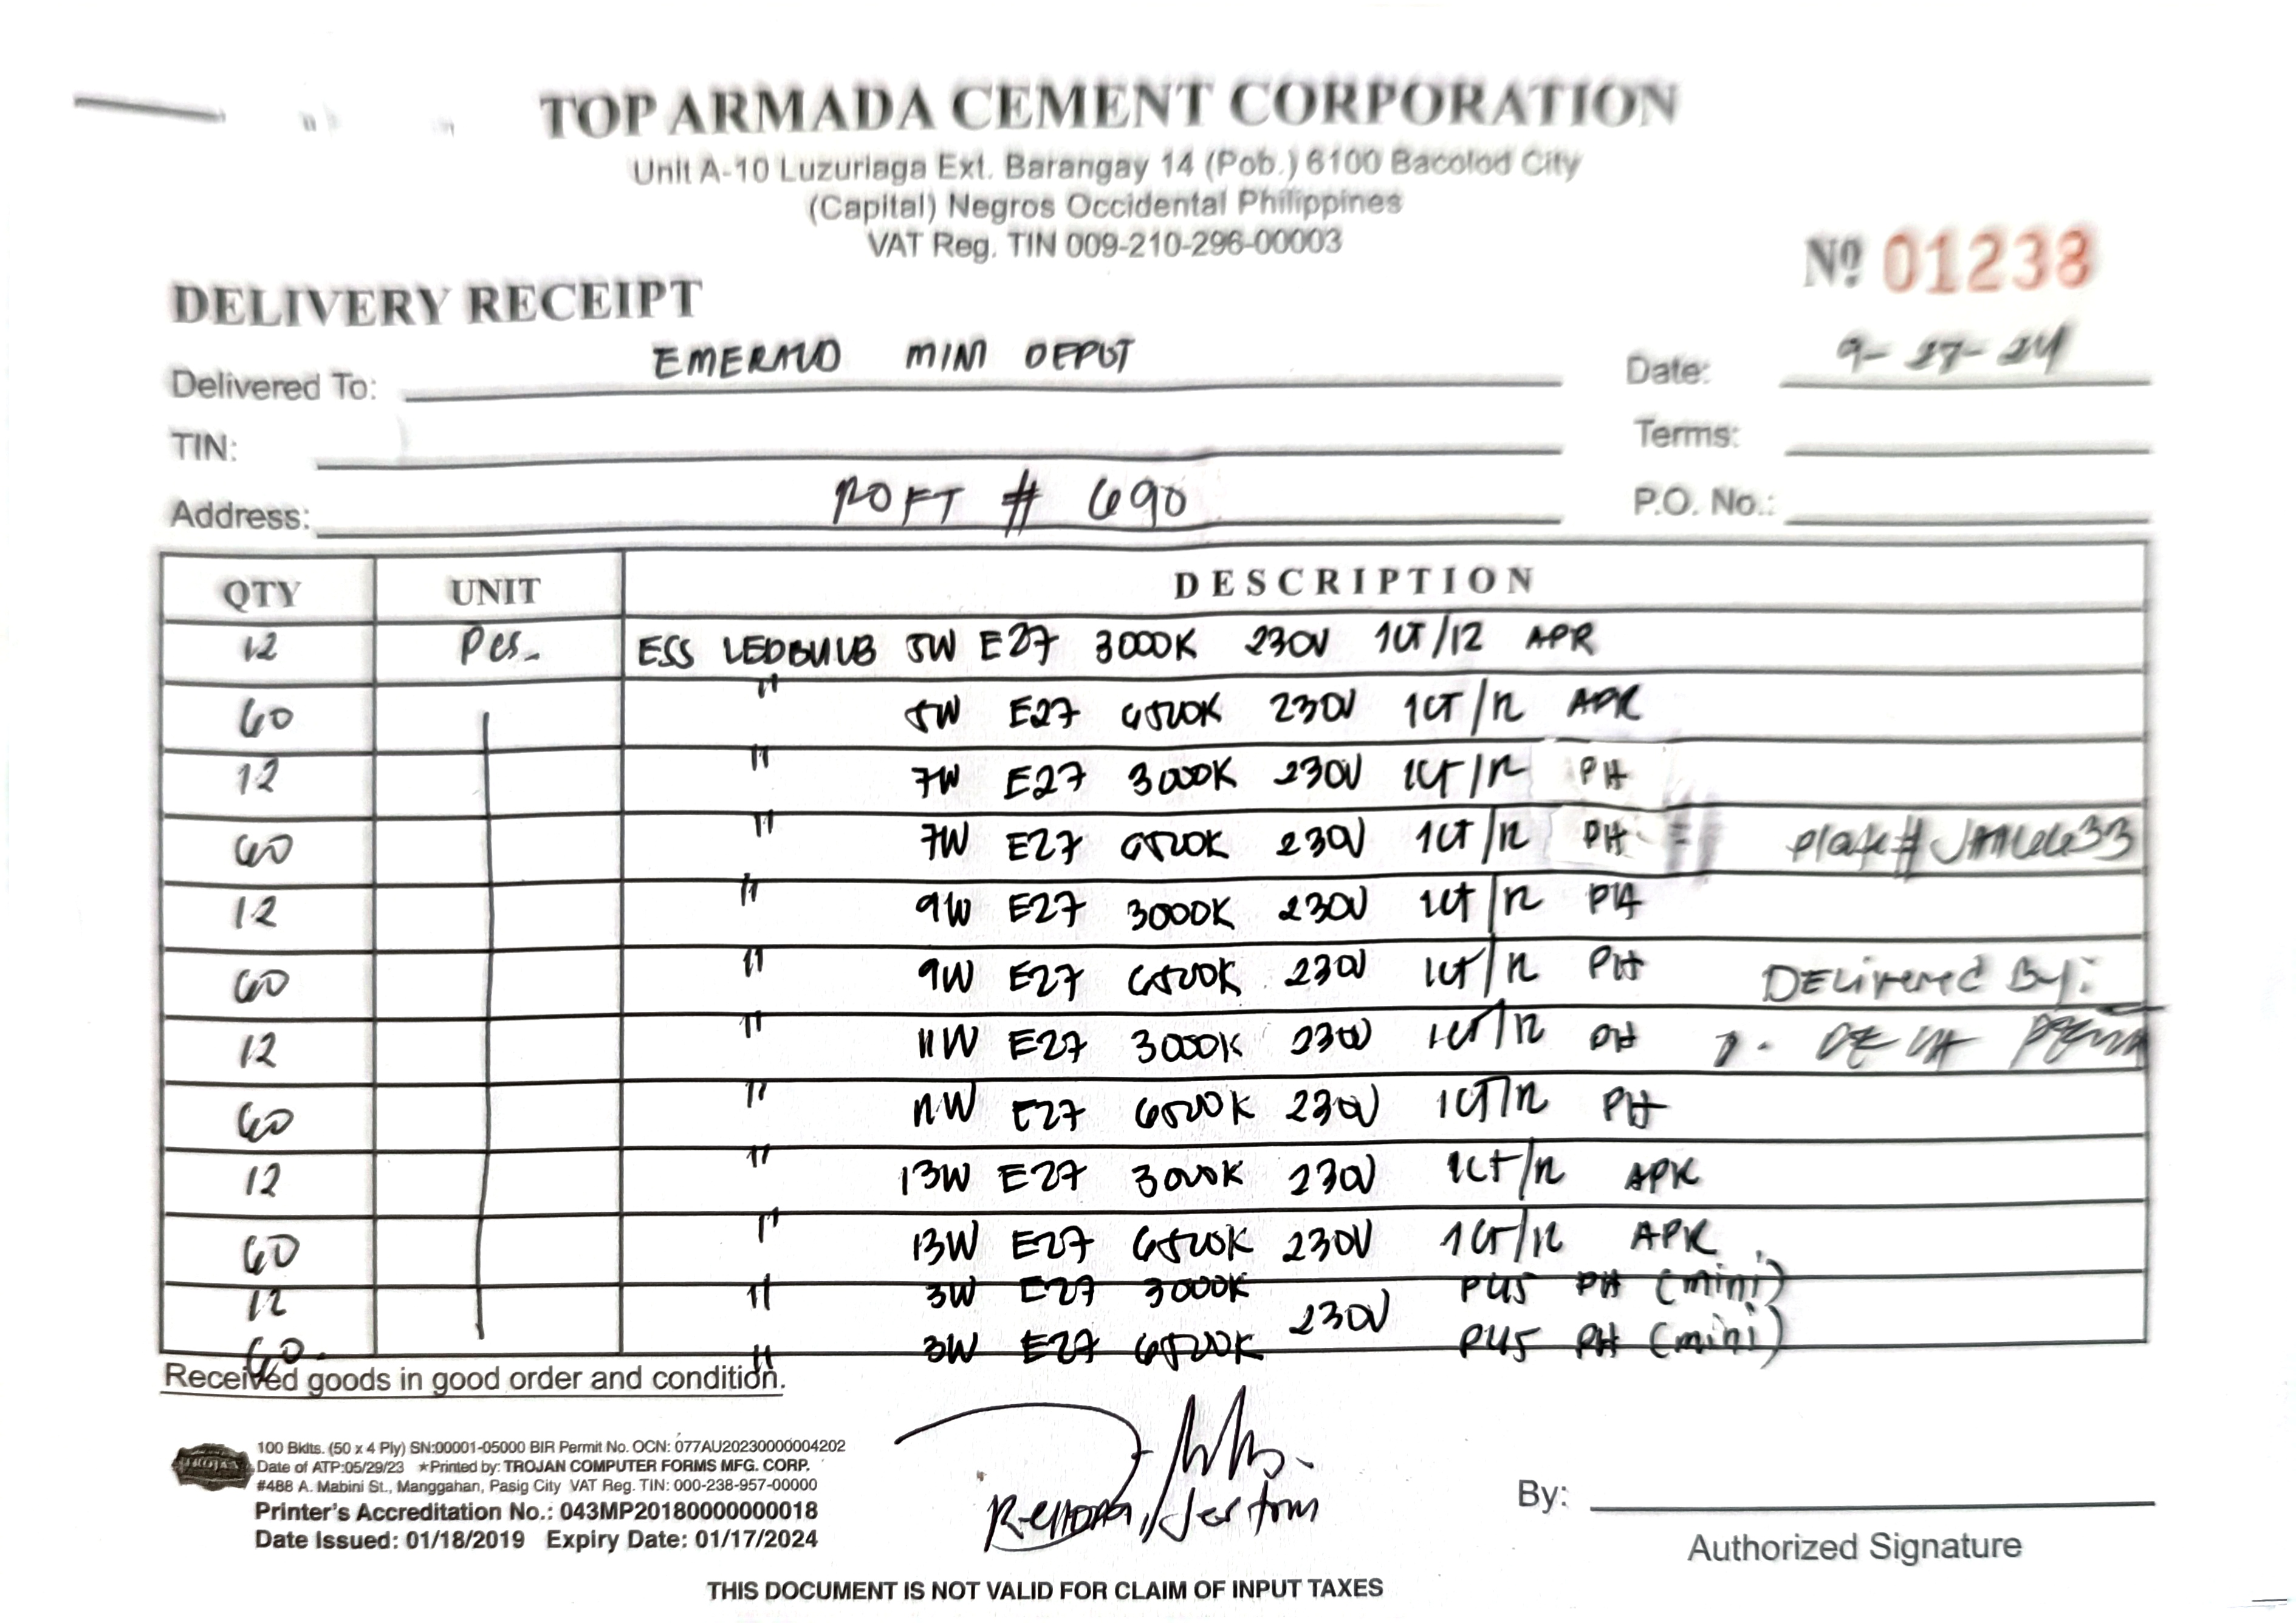 TOP ARMADA CEMENT CORPORATION
Unit A-10 Luzuriaga Ext. Barangay 14 (Pob.) 6100 Bacolod City
(Capital) Negros Occidental Philippines
VAT Reg. TIN 009-210-296-00003
Nº 01238
DELIVERY RECEIPT
Delivered To: EMERALD MINI DEPOT Date: 9-27-24
TIN: Terms:
Address: POFT # 690 P.O. No.:
QTY UNIT DESCRIPTION
12 Pcs. ESS LEDBULB 5W E27 3000K 230V 1CT/12 APR
60 " 5W E27 6500K 230V 1CT/12 APR
12 " 7W E27 3000K 230V 1CT/12 PH
60 " 7W E27 6500K 230V 1CT/12 PH Plate#
12 " 9W E27 3000K 230V 1CT/12 PH
60 " 9W E27 6500K 230V 1CT/12 PH DELivered By:
12 " 11W E27 3000K 230V 1CT/12 PH DE LA PEÑA
60 " 11W E27 6500K 230V 1CT/12 PH
12 " 13W E27 3000K 230V 1CT/12 APR
60 " 13W E27 6500K 230V 1CT/12 APR
12 " 3W E27 3000K 230V PH (mini)
60 " 3W E27 6500K PH (mini)
Received goods in good order and condition.
100 Bklts. (50 x 4 Ply) SN:00001-05000 BIR Permit No. OCN: 077AU20230000004202
Date of ATP:05/29/23 ★Printed by: TROJAN COMPUTER FORMS MFG. CORP.
#488 A. Mabini St., Manggahan, Pasig City VAT Reg. TIN: 000-238-957-00000
Printer's Accreditation No.: 043MP20180000000018
Date Issued: 01/18/2019 Expiry Date: 01/17/2024
By:
Authorized Signature
THIS DOCUMENT IS NOT VALID FOR CLAIM OF INPUT TAXES